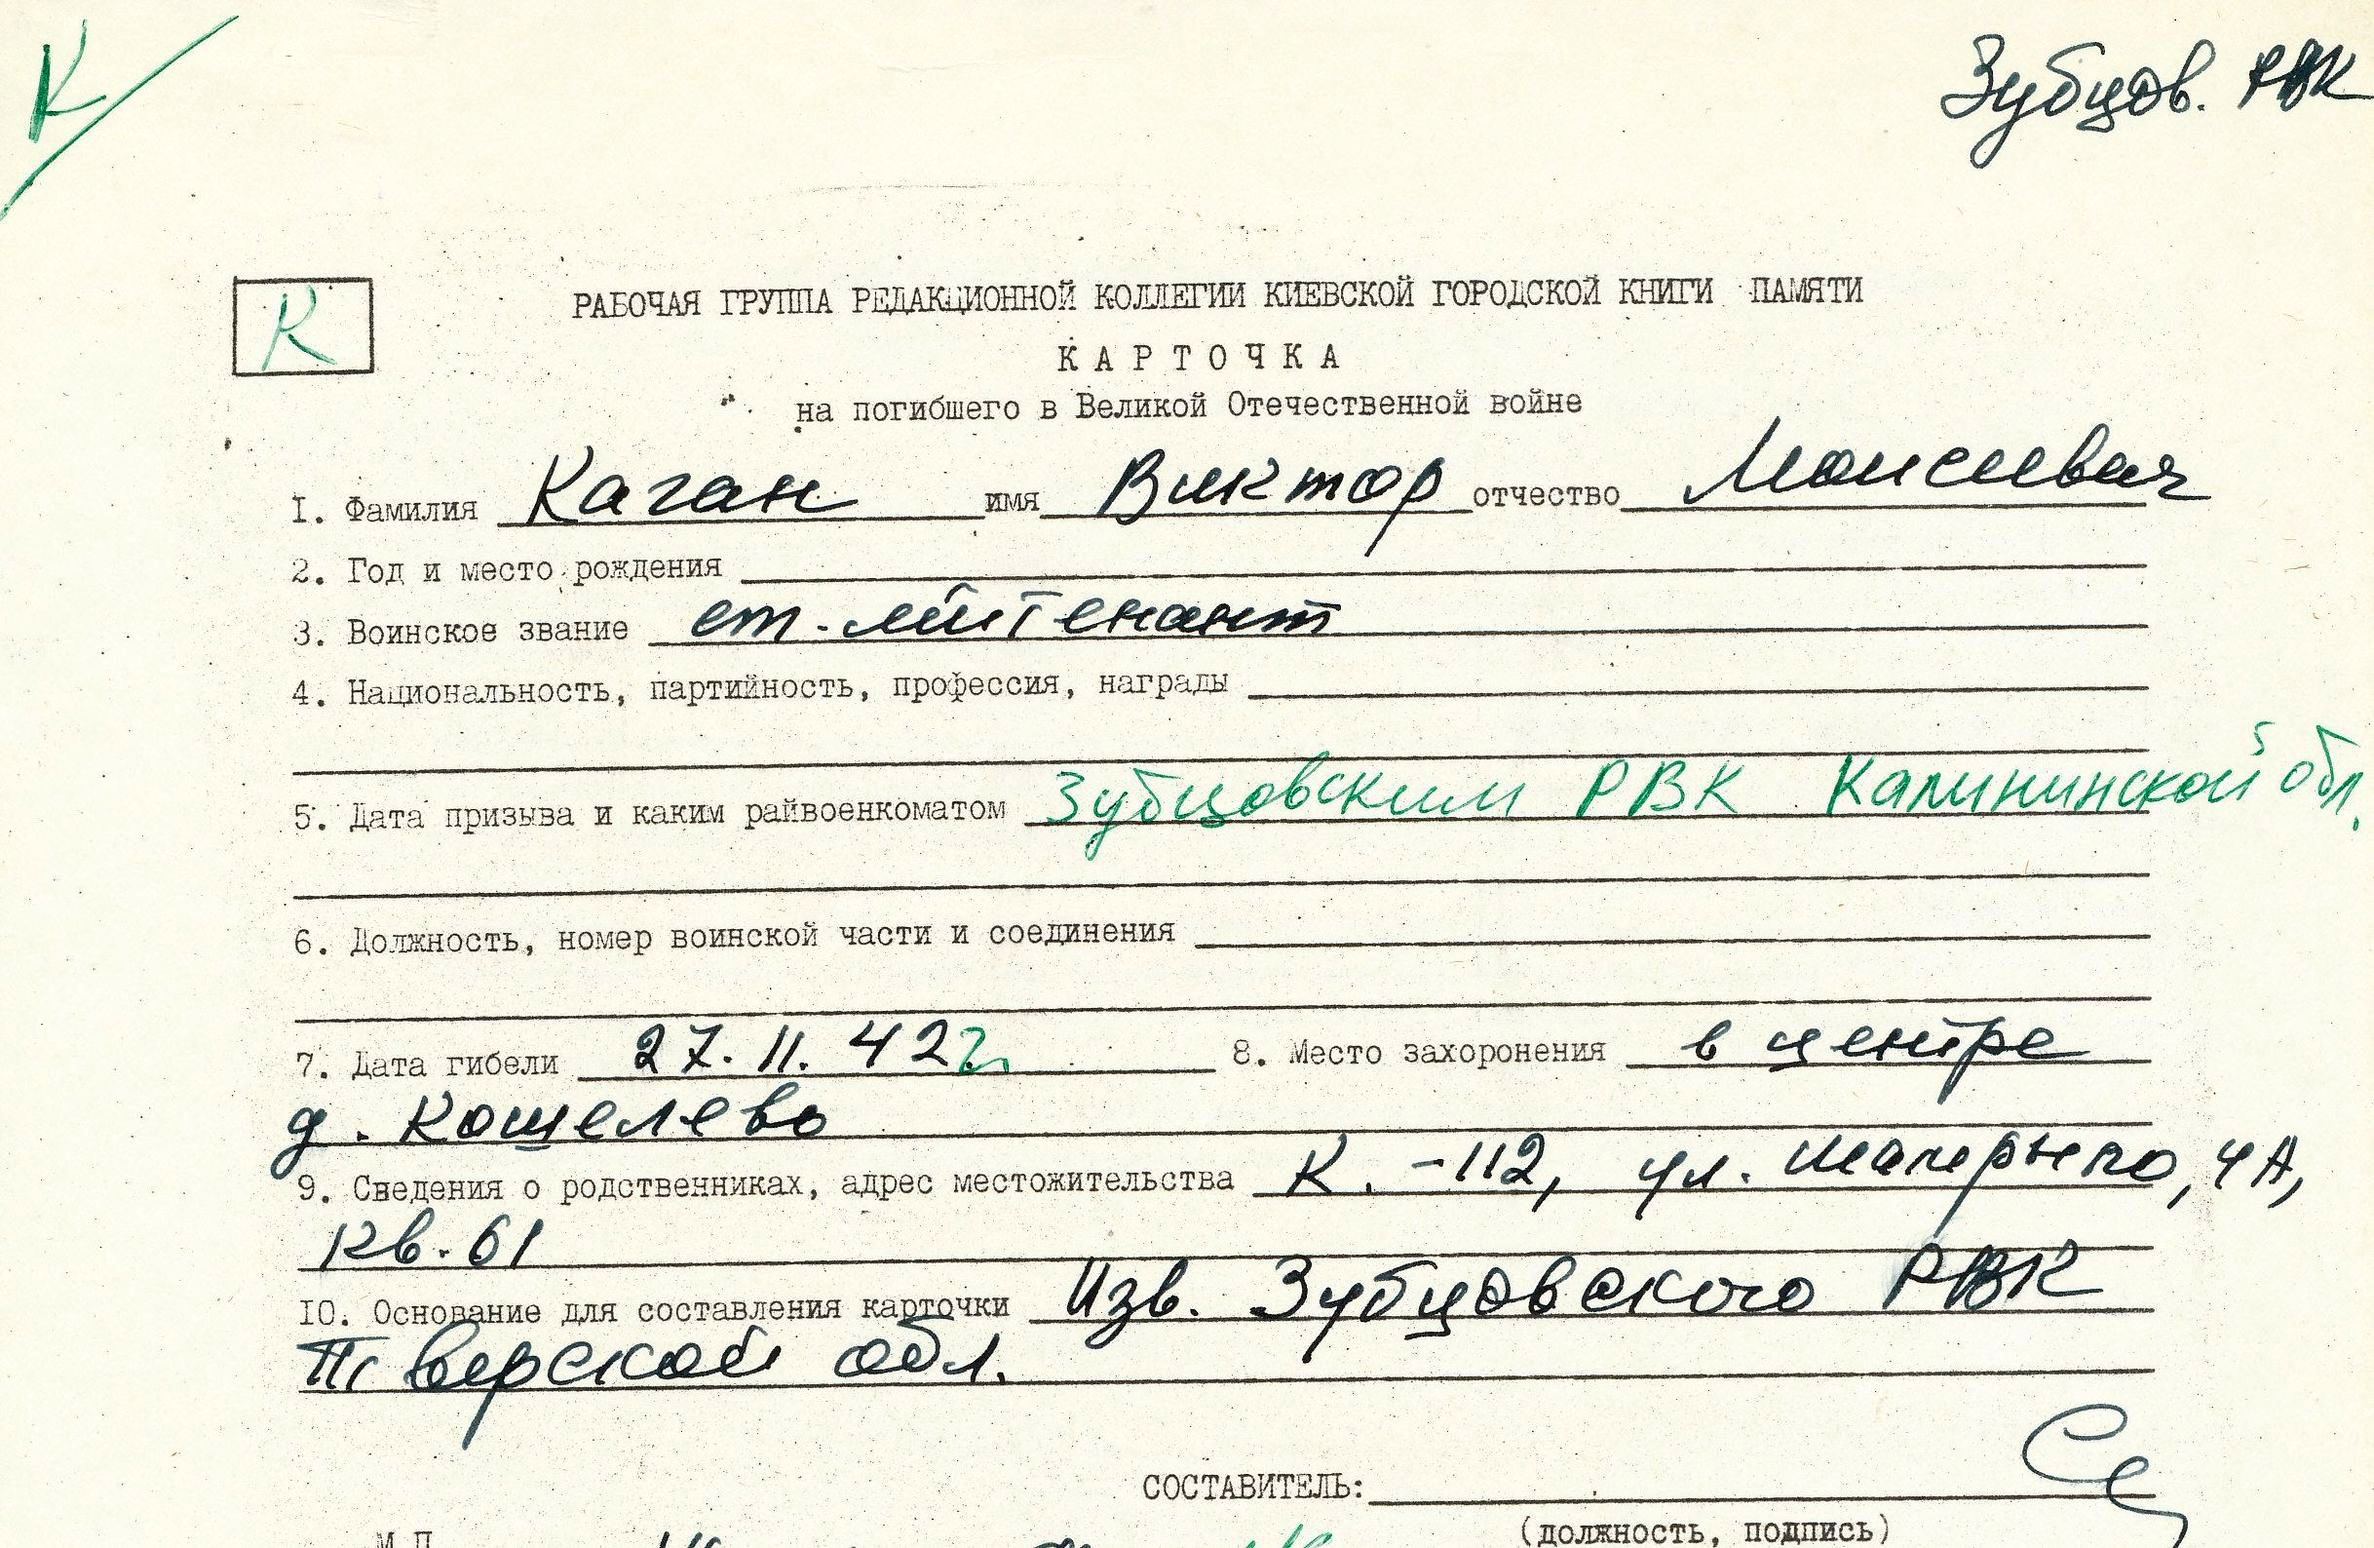 К
Зубцов. РВК
К
РАБОЧАЯ ГРУППА РЕДАКЦИОННОЙ КОЛЛЕГИИ КИЕВСКОЙ ГОРОДСКОЙ КНИГИ ПАМЯТИ
КАРТОЧКА
на погибшего в Великой Отечественной войне
1. Фамилия Каган имя Виктор отчество Моисеевич
2. Год и место рождения
3. Воинское звание ст. лейтенант
4. Национальность, партийность, профессия, награды
5. Дата призыва и каким райвоенкоматом Зубцовским РВК Калининской обл.
6. Должность, номер воинской части и соединения
7. Дата гибели 27.11.42 г. 8. Место захоронения в центре
д. Кошелево
9. Сведения о родственниках, адрес местожительства К.-112, ул. 4А,
кв. 61
10. Основание для составления карточки Изв. Зубцовского РВК
Тверской обл.
СОСТАВИТЕЛЬ:
(должность, подпись)
М.П.